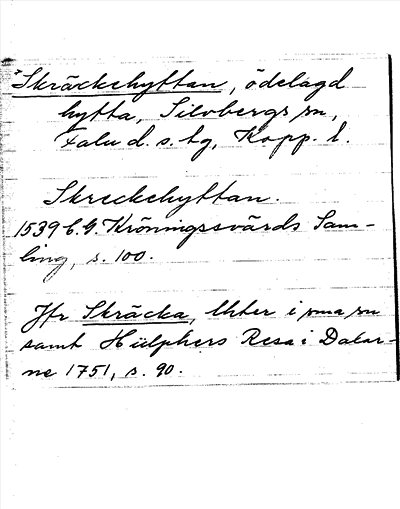 *Skräckehyttan, ödelagd
hytta, Silvbergs sn,
Falu d. s. tg, Kopp. l.
Skreckehyttan.
1539 C.G. Kröningssvärds Sam-
ling, s. 100.
Jfr Skräcka, lhter i sma sn
samt Hülphers Resa i Dalar-
ne 1751, s. 90.